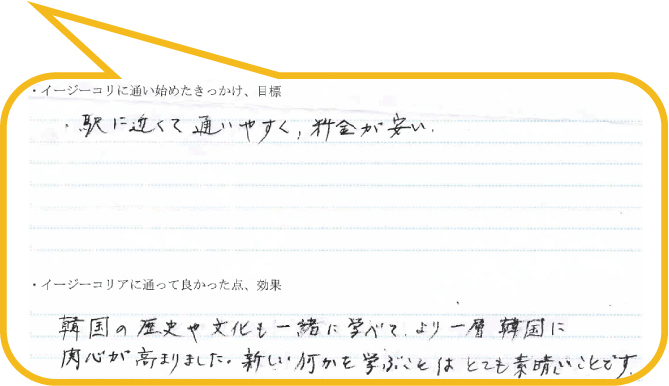 ・イージーコリに通い始めたきっかけ、目標
・駅に近くて通いやすく,料金が安い.
・イージーコリアに通って良かった点、効果
韓国の歴史や文化も一緒に学べて、より一層韓国に
関心が高まりました。新しい何かを学ぶことはとても素晴しいことです.